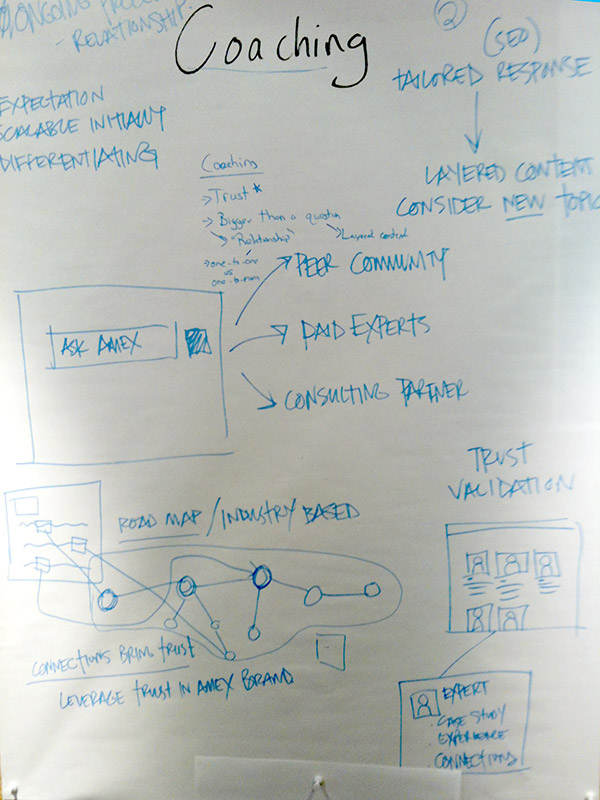 ONGOING
- RELATIONSHIP.
Coaching
2
(SEO)
TAILORED RESPONSE
EXPECTATION
SCALABLE INITIALLY
DIFFERENTIATING
LAYERED CONTENT
CONSIDER NEW TOPIC
Coaching
→ Trust *
→ Bigger than a question
"Relationship"
Layered content
→ one-to-one
vs
one-to-many
PEER COMMUNITY
ASK AMEX
PAID EXPERTS
CONSULTING PARTNER
TRUST
VALIDATION
ROAD MAP / INDUSTRY BASED
CONNECTIONS BRING TRUST
LEVERAGE TRUST IN AMEX BRAND
EXPERT
· CASE STUDY
· EXPERIENCE
CONNECTIONS